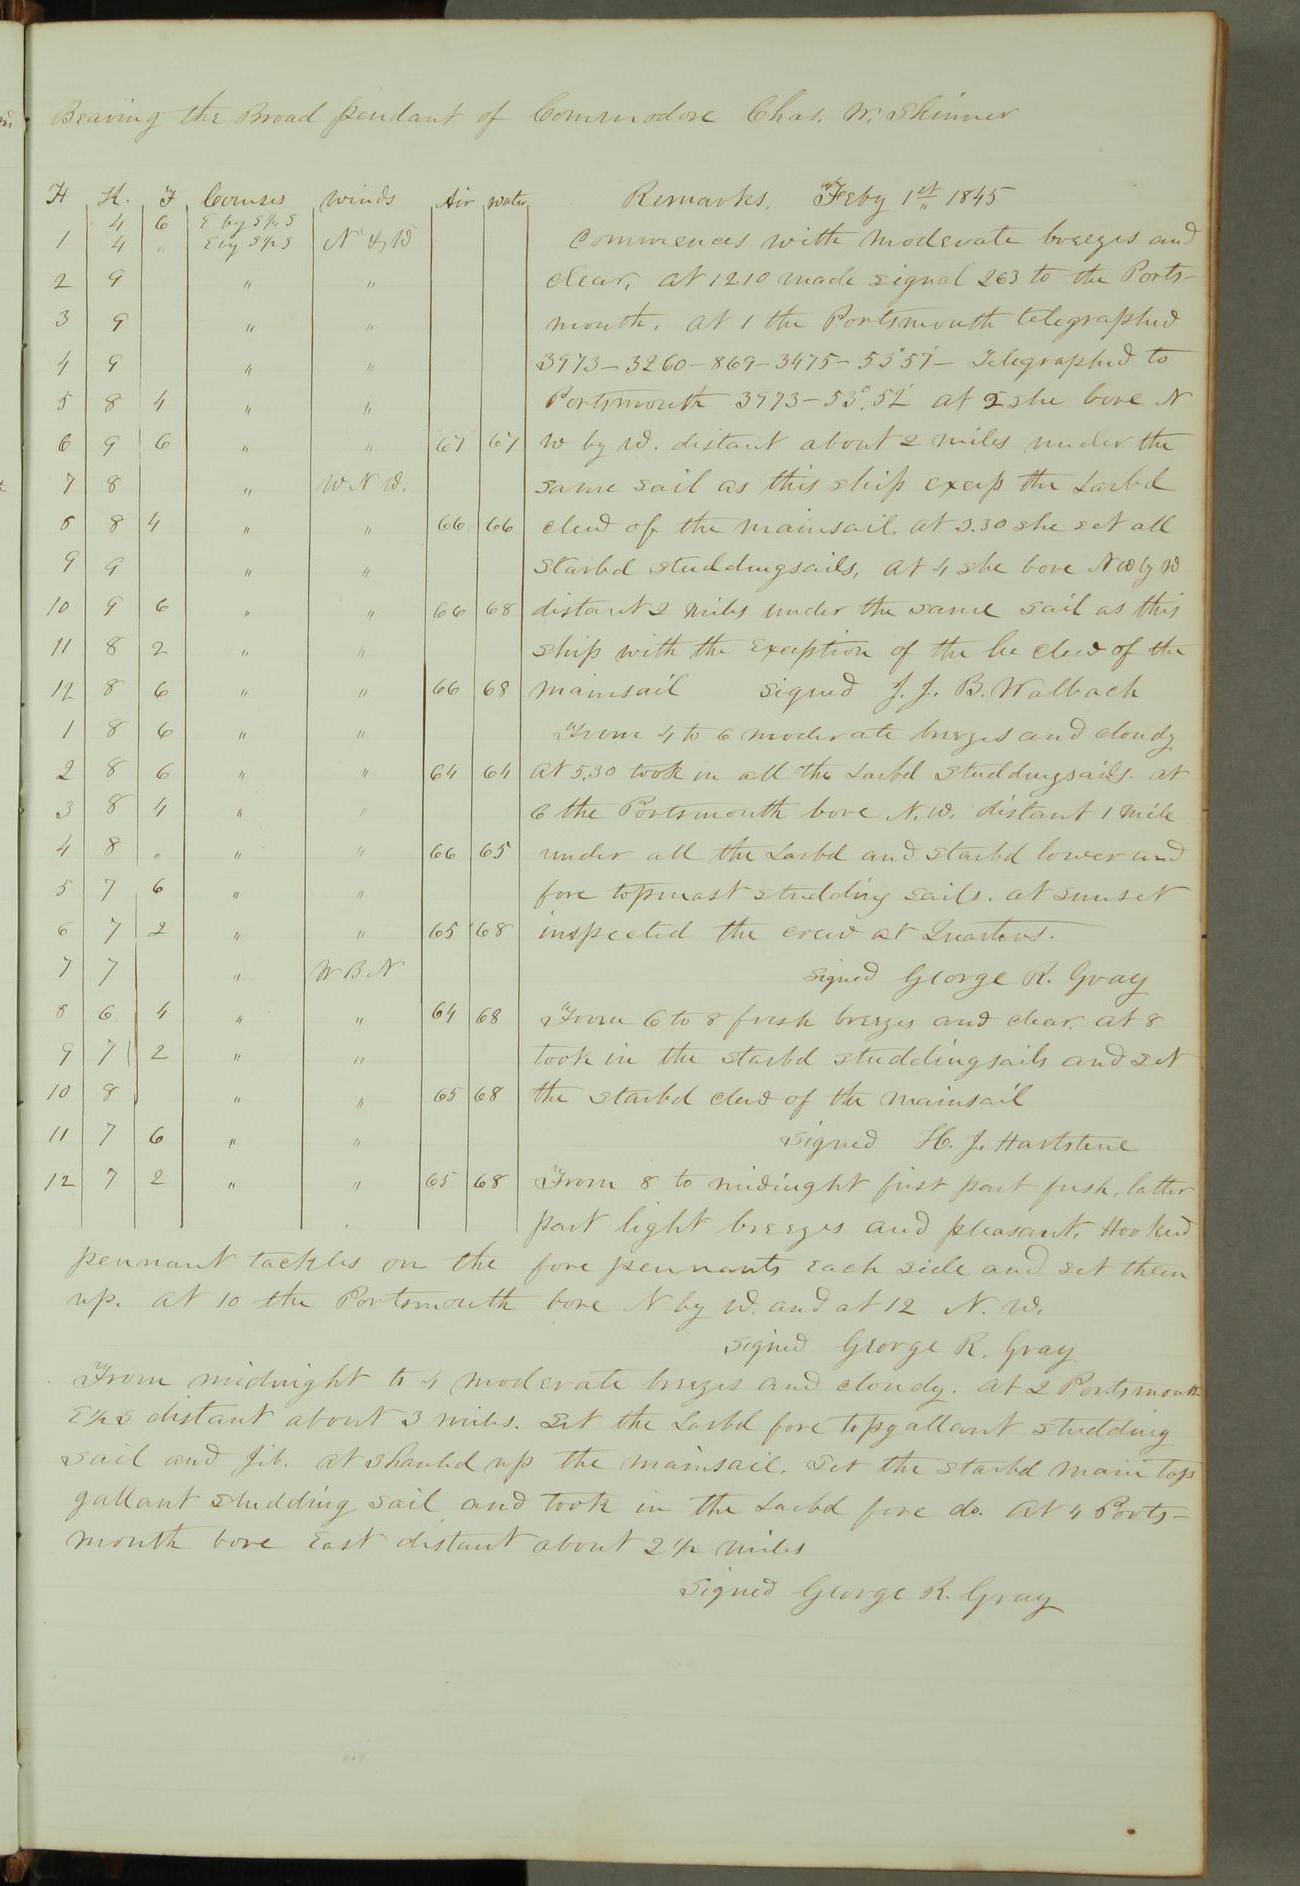 Bearing the Broad pendant of Commodore Chas. W. Skinner
H K. F Courses Winds Air water Remarks, Feby 1st 1845
4 6 E by S½S
1 4 " E by S½S N & W Commences with moderate breezes and
2 9 " " clear, at 1210 made signal 263 to the Ports-
3 9 " " mouth. at 1 the Portsmouth telegraphed
4 9 " " 3973-3260-869-3475-53°57'- Telegraphed to
5 8 4 " " Portsmouth 3973-53°.52' at 2 she bore N
6 9 6 " " 67 67 W by W. distant about 2 miles under the
7 8 " W N W. same sail as this ship excep the Larbd
8 8 4 " " 66 66 clew of the mainsail. at 3.30 she set all
9 9 " " Starbd studdingsails, at 4 she bore NW by W
10 9 6 " " 66 68 distant 2 miles under the same sail as this
11 8 2 " " ship with the Exception of the lee clew of the
12 8 6 " " 66 68 mainsail signed J. J. B. Walbach
1 8 6 " " From 4 to 6 moderate breezes and cloudy
2 8 6 " " 64 64 at 5.30 took in all the Larbd studdingsails. at
3 8 4 " " 6 the Portsmouth bore N.W. distant 1 mile
4 8 " " " 66 65 under all the Larbd and starbd lower and
5 7 6 " " fore topmast studding sails. at sunset
6 7 2 " " 65 68 inspected the crew at Quarters.
7 7 " W B N signed George R. Gray
8 6 4 " " 64 68 From 6 to 8 fresh breezes and clear. at 8
9 7 2 " " took in the starbd studdingsails and set
10 8 " " 65 68 the starbd clew of the mainsail
11 7 6 " " signed H. J. Hartstene
12 7 2 " " 65 68 From 8 to midnight first part fresh, latter
part light breezes and pleasant, Hooked
pennant tackles on the fore pennants each side and set them
up. at 10 the Portsmouth bore N by W. and at 12 N. W.
signed George R. Gray
From midnight to 4 moderate breezes and cloudy. at 2 Portsmouth
E½S distant about 3 miles. Set the Larbd fore topgallant studding
sail and Jib. at 3 hauled up the mainsail. Set the starbd main top
gallant studding sail and took in the Larbd fore do. At 4 Ports-
mouth bore East distant about 2½ miles
Signed George R. Gray